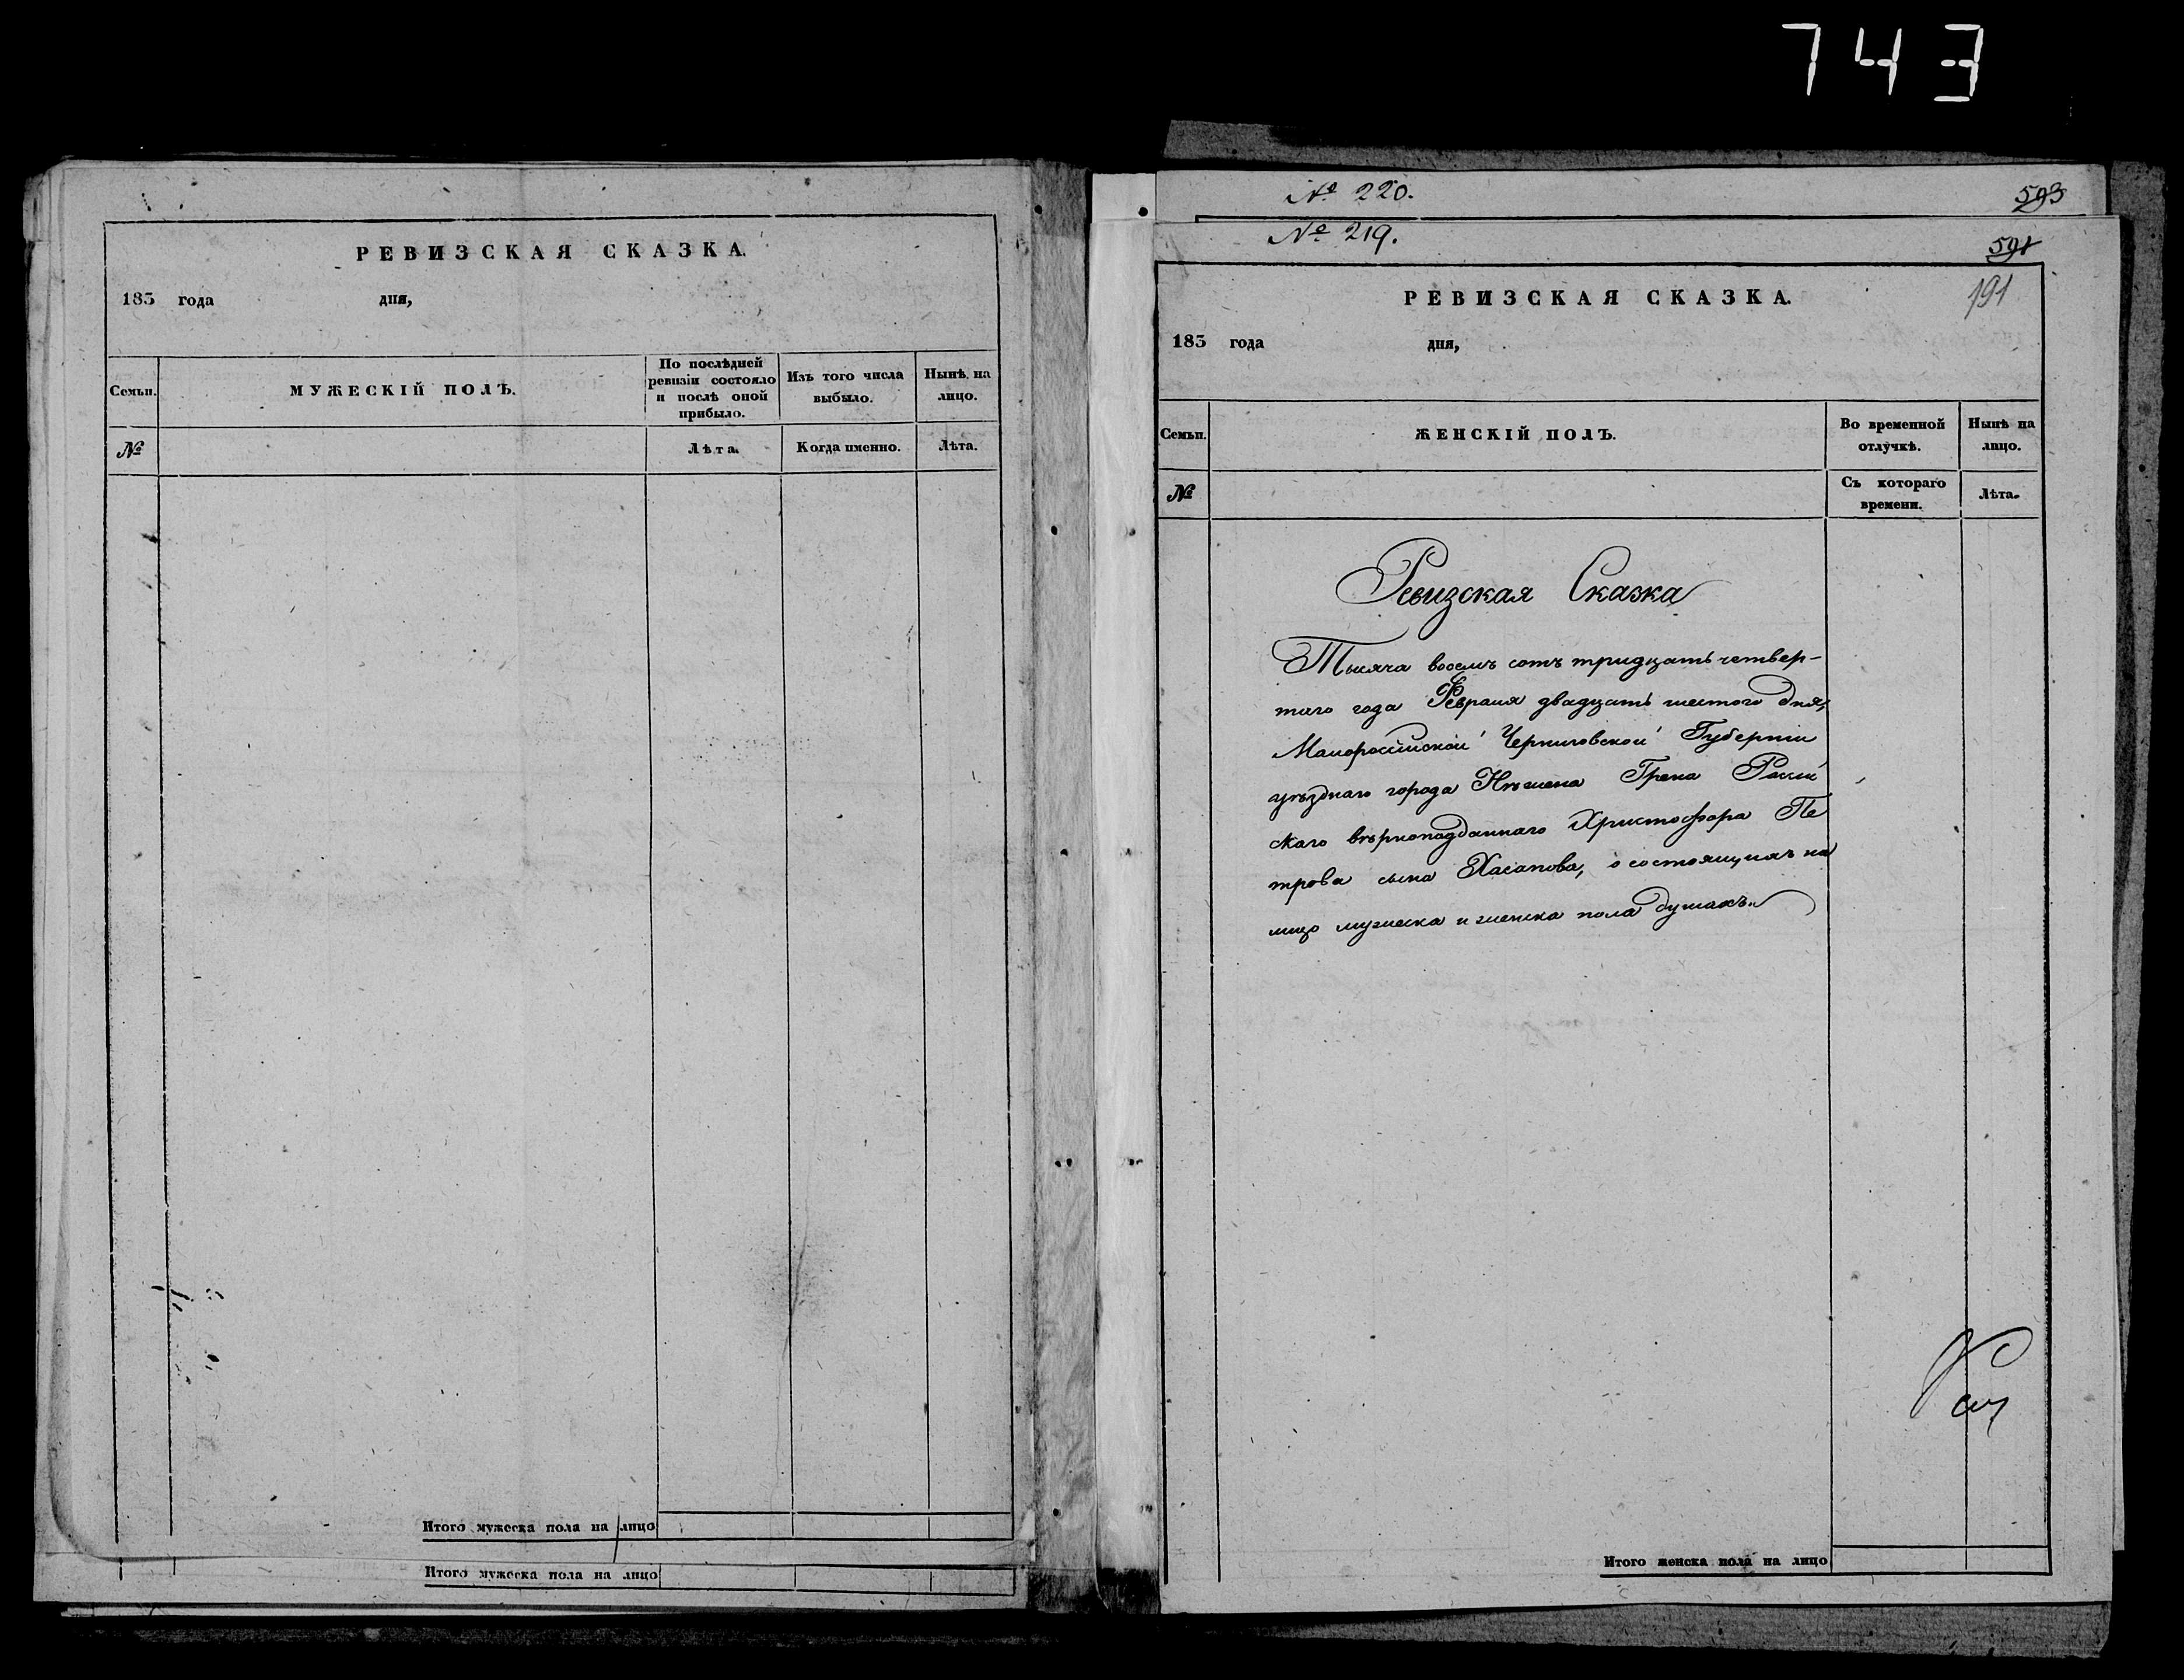 743
РЕВИЗСКАЯ СКАЗКА.
183 года дня,
Семьи. МУЖЕСКІЙ ПОЛЪ. По послѣдней ревизіи состояло и послѣ оной прибыло. Изъ того числа выбыло. Нынѣ на лицо.
№ Лѣта. Когда именно. Лѣта.
Итого мужеска пола на лицо
Итого мужеска пола на лицо
№ 220. 593
№ 219.
591
191
РЕВИЗСКАЯ СКАЗКА.
183 года дня,
Семьи. ЖЕНСКІЙ ПОЛЪ. Во временной отлучкѣ. Нынѣ на лицо.
№ Съ котораго времени. Лѣта.
Ревизская Сказка
Тысяча восемь сотъ тридцать четвер-
таго года Февраля двадцать шестого дня,
Малороссійской Черниговской Губерніи
уѣзднаго города Нѣжина Грека Россій
скаго вѣрноподданнаго Христофора Пе
трова сына Хасапова, о состоящихъ на
лицо мужеска и женска пола душахъ.
Итого женска пола на лицо